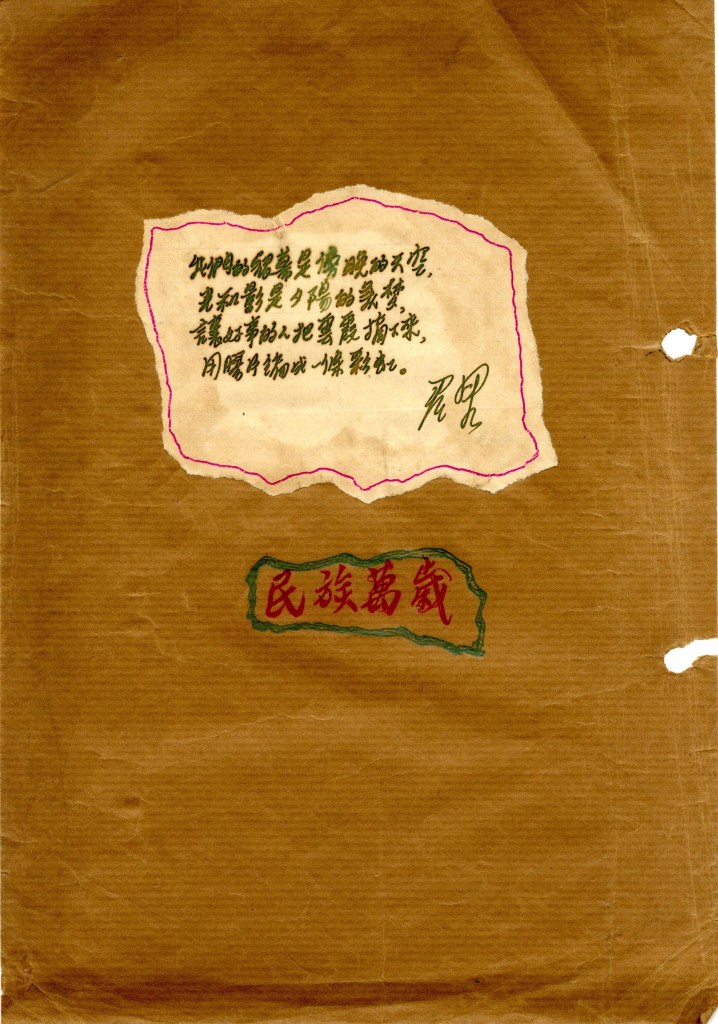 我們的銀幕是傍晚的天空,
光和影是夕陽的梦,
讓好事的人把雲霞摘下來,
用膠片編成一條彩虹。
民族萬歲